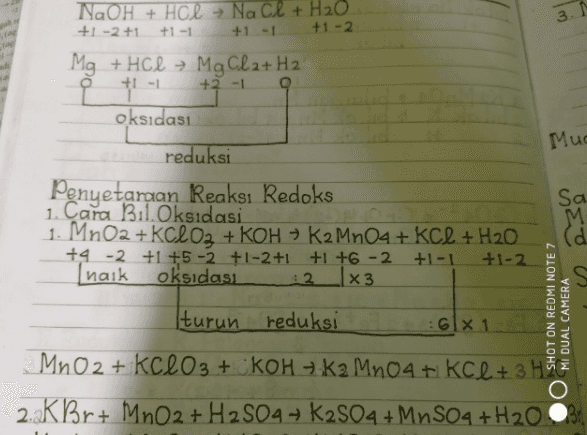 NaOH + HCl → NaCl + H2O
+1 -2 +1 +1 -1 +1 -1 +1 -2
Mg + HCl → MgCl2 + H2
0 +1 -1 +2 -1 0
oksidasi
reduksi
Penyetaraan Reaksi Redoks
1. Cara Bil. Oksidasi
1. MnO2 + KClO3 + KOH → K2MnO4 + KCl + H2O
+4 -2 +1 +5 -2 +1 -2 +1 +1 +6 -2 +1 -1 +1 -2
naik oksidasi : 2 x 3
turun reduksi : 6 x 1
MnO2 + KClO3 + KOH → K2MnO4 + KCl + 3 H2O
2. KBr + MnO2 + H2SO4 → K2SO4 + MnSO4 + H2O + B
3.
Mua
Sa
M
(d
S
SHOT ON REDMI NOTE 7
MI DUAL CAMERA